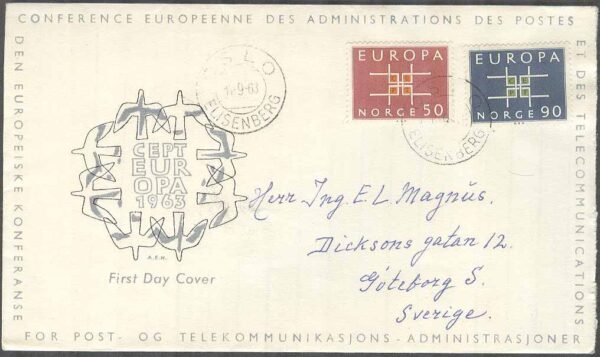 CONFERENCE EUROPEENNE DES ADMINISTRATIONS DES POSTES
ET DES TELECOMMUNICATIONS
DEN EUROPEISKE KONFERANSE
FOR POST- OG TELEKOMMUNIKASJONS - ADMINISTRASJONER
OSLO
9-63
ELISENBERG
EUROPA
NORGE 50
EUROPA
NORGE 90
ELISENBERG
CEPT
EUR
OPA
1963
A.E.H.
First Day Cover
Herr Ing. E. L. Magnùs.
Dicksons gatan 12.
Göteborg S.
Sverige.